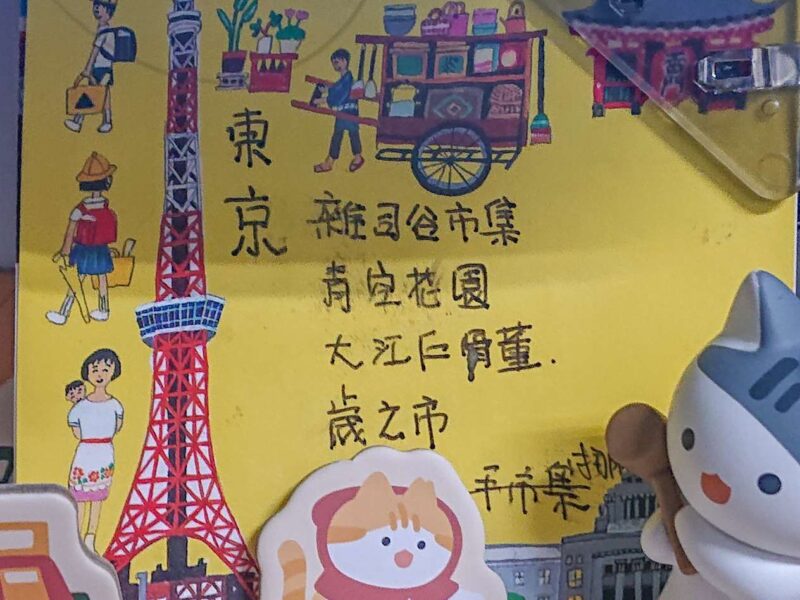 東京
雜司谷市集
青空花園
大江戶骨董.
歲之市
手市集